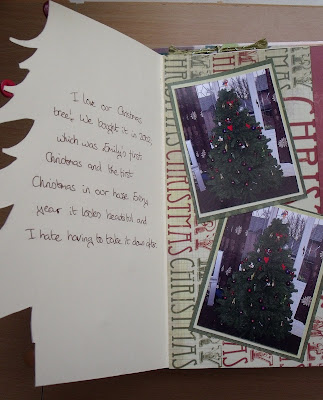 I love our Christmas
tree! We bought it in 2005,
which was Emily's first
Christmas and the first
Christmas in our house. Every
year it looks beautiful and
I hate having to take it down after.
CHRISTMAS
MERRY
CHRISTMAS